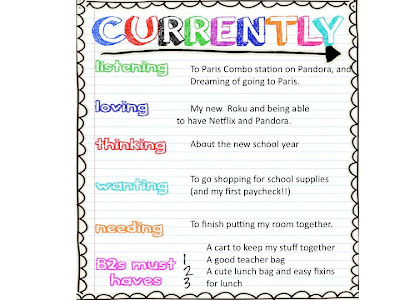 CURRENTLY
listening To Paris Combo station on Pandora, and
Dreaming of going to Paris.
loving My new Roku and being able
to have Netflix and Pandora.
thinking About the new school year
wanting To go shopping for school supplies
(and my first paycheck!!)
needing To finish putting my room together.
A cart to keep my stuff together
B2s must 1 A good teacher bag
haves 2 A cute lunch bag and easy fixins
3 for lunch